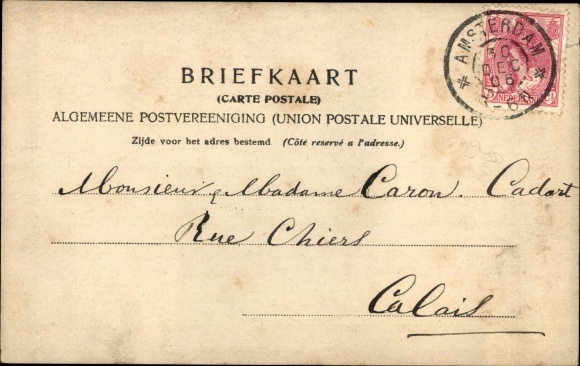 BRIEFKAART
(CARTE POSTALE)
ALGEMEENE POSTVEREENIGING (UNION POSTALE UNIVERSELLE)
Zijde voor het adres bestemd (Côté reservé a l'adresse.)
AMSTERDAM
30
DEC
06
NEDERLAND
Monsieur & Madame Caron. Cadart
Rue Chiers
Calais